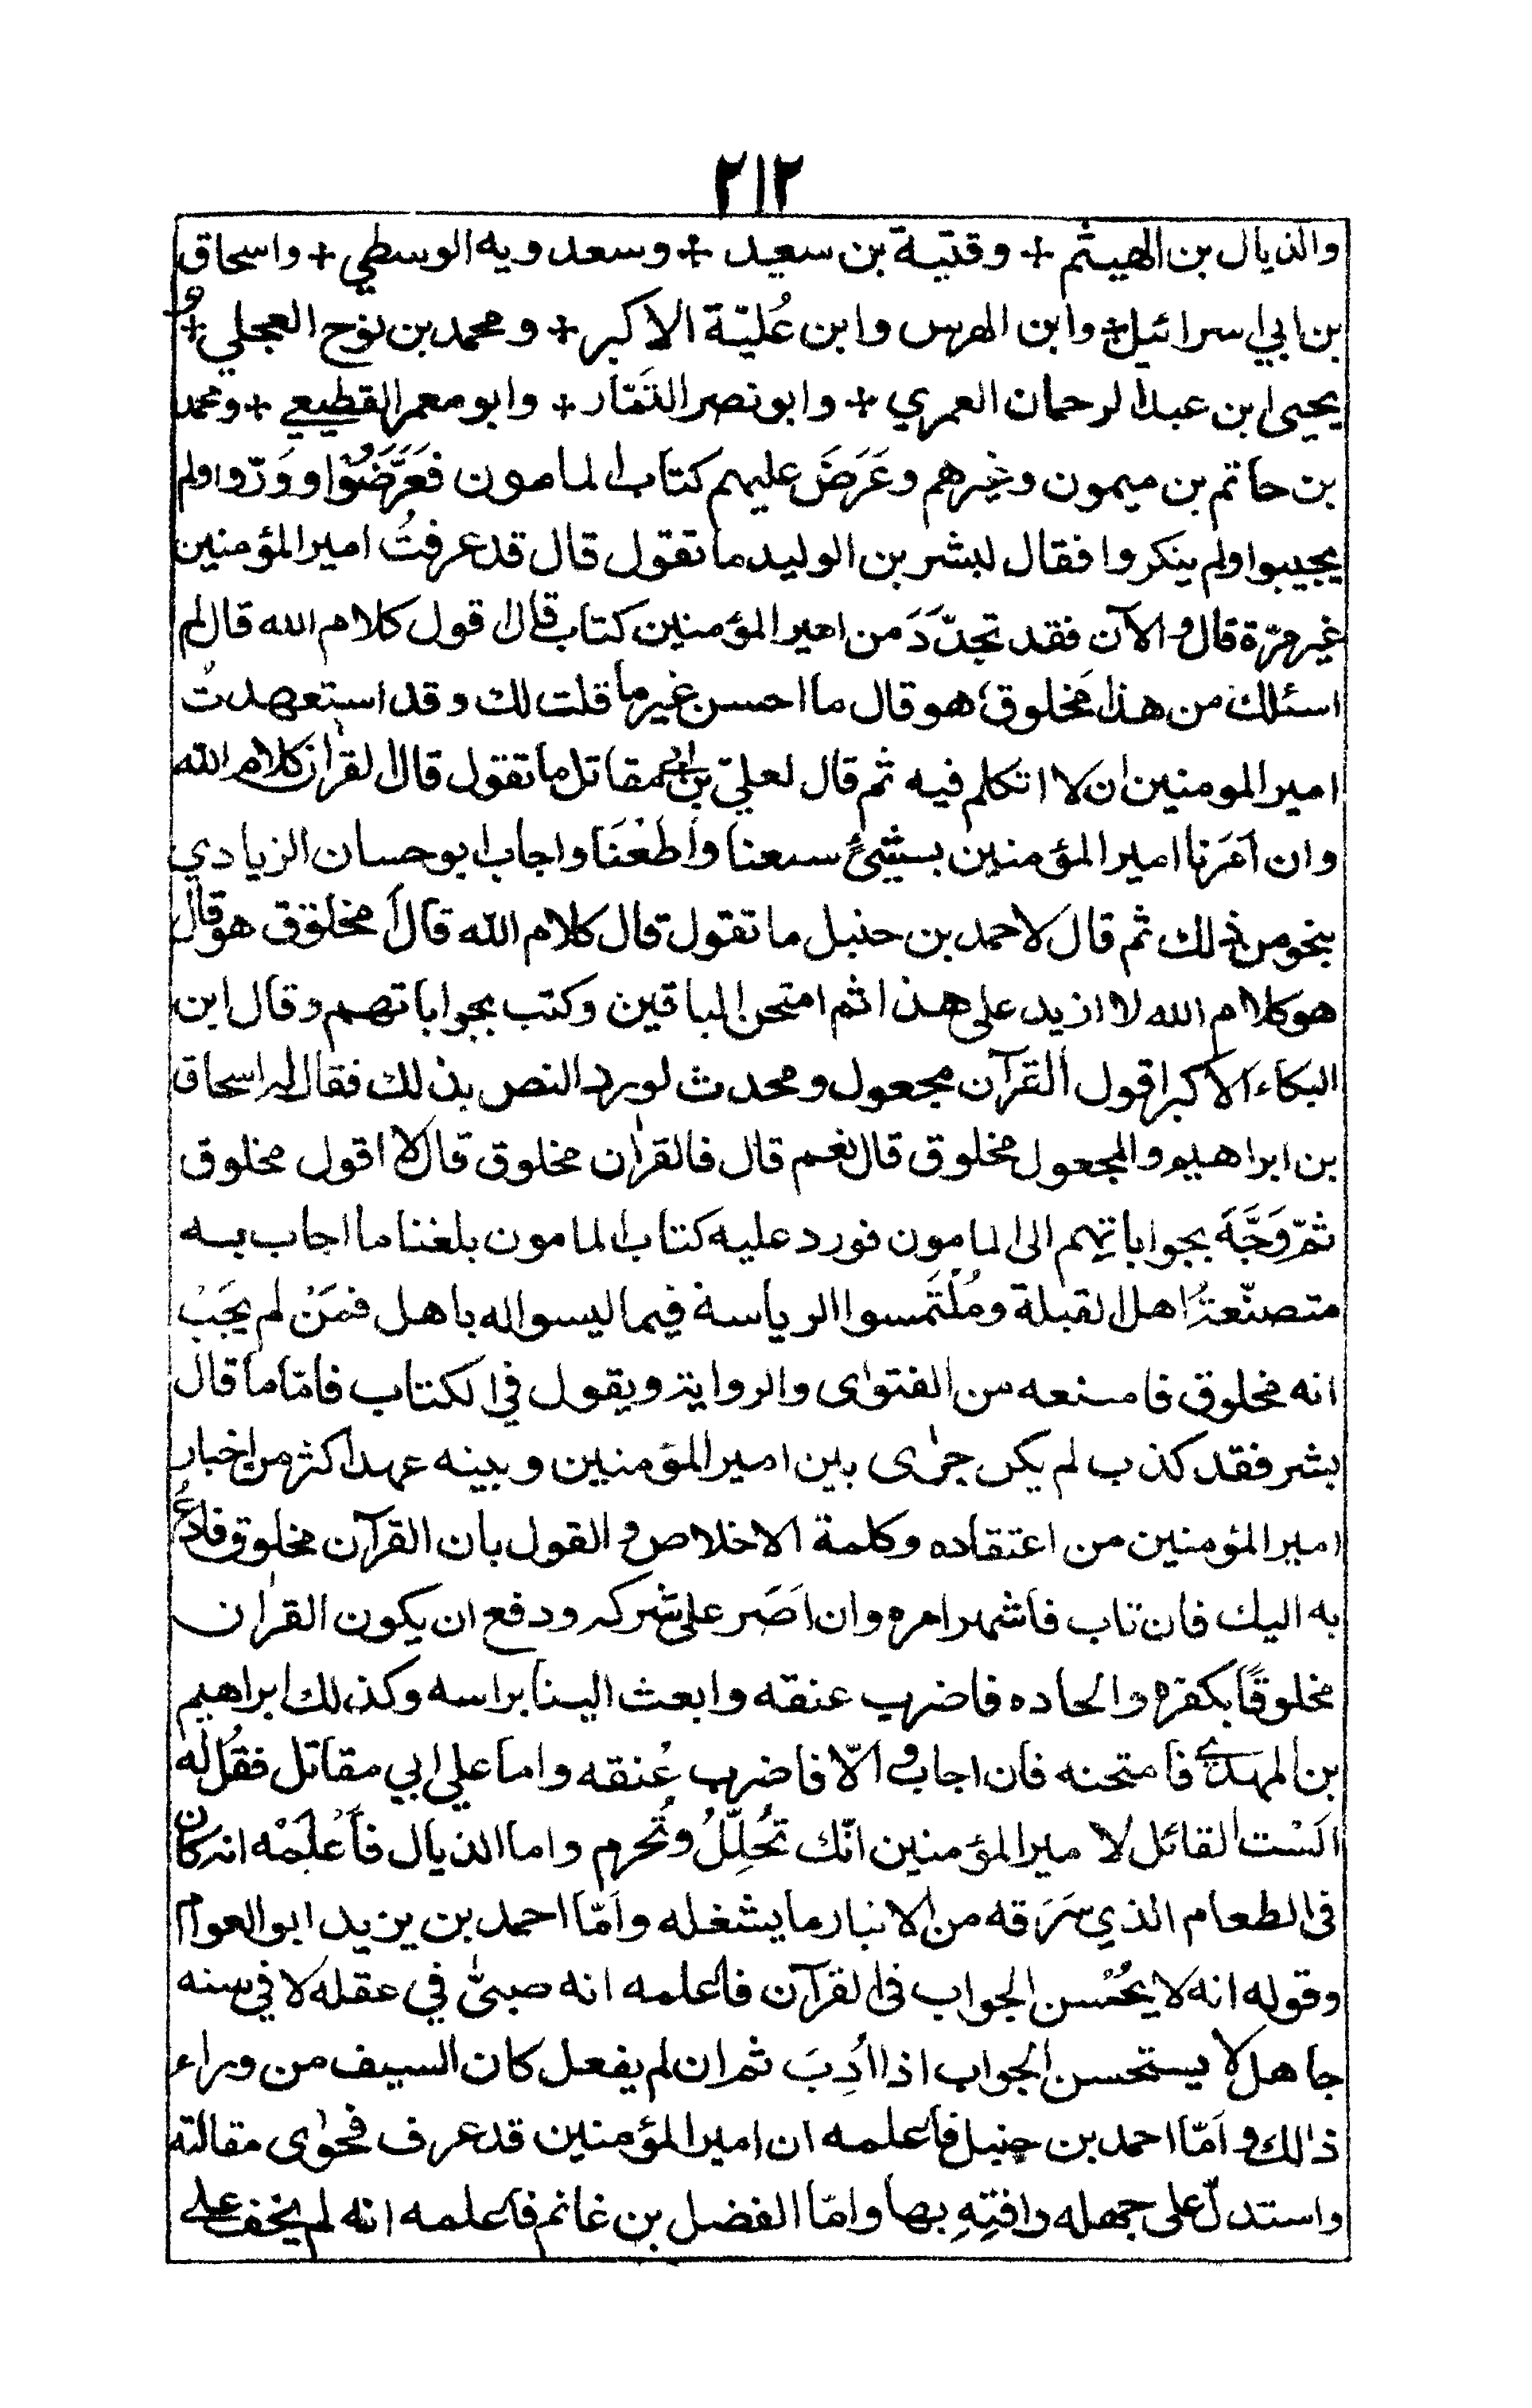 ٢١٢
والذيال بن الهيثم + وقتيبة بن سعيد + وسعدويه الوسطي + واسحاق
بن ابي اسرائيل + وابن الهرس وابن عُليّة الاكبر + ومحمد بن نوح العجلي + و
يحيى ابن عبد الرحمان العمري + وابو نصر التمَّار + وابو معمر القطيعي + ومحمد
بن حاتم بن ميمون وغيرهم وعَرَضَ عليهم كتاب المامون فعَرَّضُوْا ووَرّوا ولم
يجيبوا ولم ينكروا فقال لبشر بن الوليد ما تقول قال قد عرفتُ امير المؤمنين
غير مرّة قال و الآن فقد تجدّدَ من امير المؤمنين كتاب قال اقول كلام الله قال لم
اسئلك من هذا مخلوق هو قال ما احسن غير ما قلت لك وقد استعهدتُ
امير المومنين ان لا اتكلم فيه ثم قال لعليّ بن ابي مقاتل ما تقول قال القرآن كلام الله
وان اَمَرنا امير المؤمنين بشيئٍ سمعنا واَطَعْنَا واجاب ابو حسان الزيادي
بنحو من ذلك ثم قال لاحمد بن حنبل ما تقول قال كلام الله قال اَ مخلوق هو قال
هو كلام الله لا ازيد على هذا ثم امتحن الباقين وكتب بجواباتهم وقال ابن
البكاء الاكبر اقول القرآن مجعول ومحدث لورود النص بذلك فقال له اسحاق
بن ابراهيم والمجعول مخلوق قال نعم قال فالقرآن مخلوق قال لا اقول مخلوق
ثمّ وَجَّهَ بجواباتِهم الى المامون فورد عليه كتاب المامون بلغنا ما اجاب به
متصنّعةُ اهل القبلة ومُلْتَمسوا الرياسة فيما ليسوا له باهل فمَنْ لم يجَبْ
انه مخلوق فامنعه من الفتوٰى والرواية ويقول في الكتاب فامّا ما قال
بشر فقد كذب لم يكن جرٰى بين امير المؤمنين وبينه عهد اكثر من اخبار
امير المؤمنين من اعتقاده وكلمة الاخلاص و القول بان القرآن مخلوق فادعُ
به اليك فان تاب فاشهر امره وان اَصَر على شركه ودفع ان يكون القرآن
مخلوقًا بكفره والحاده فاضرب عنقه وابعث الينا براسه وكذلك ابراهيم
بن المهدي فامتحنه فان اجاب و الّا فاضرب عُنقه واما علي ابي مقاتل فقُل له
اَلَسْت القائل لامير المؤمنين انّك تُحَلِّلُ وتُحرم واما الذيال فاَعْلِمْه انه كان
في الطعام الذي سَرَقه من الانبار ما يشغله واَمّا احمد بن يزيد ابو العوام
وقوله انه لا يُحْسن الجواب في القرآن فاَعلمه انه صبيّ في عقله لا في سنه
جاهل لا يستحسن الجواب اذا اُدِبَ ثم ان لم يفعل كان السيف من وراء
ذٰلك و اَمّا احمد بن حنبل فاَعلمه ان امير المؤمنين قد عرف فحوٰى مقالته
واستدلّ على جهله واٰفتِهِ بها وامّا الفضل بن غانم فاَعلمه انه لم يخف على